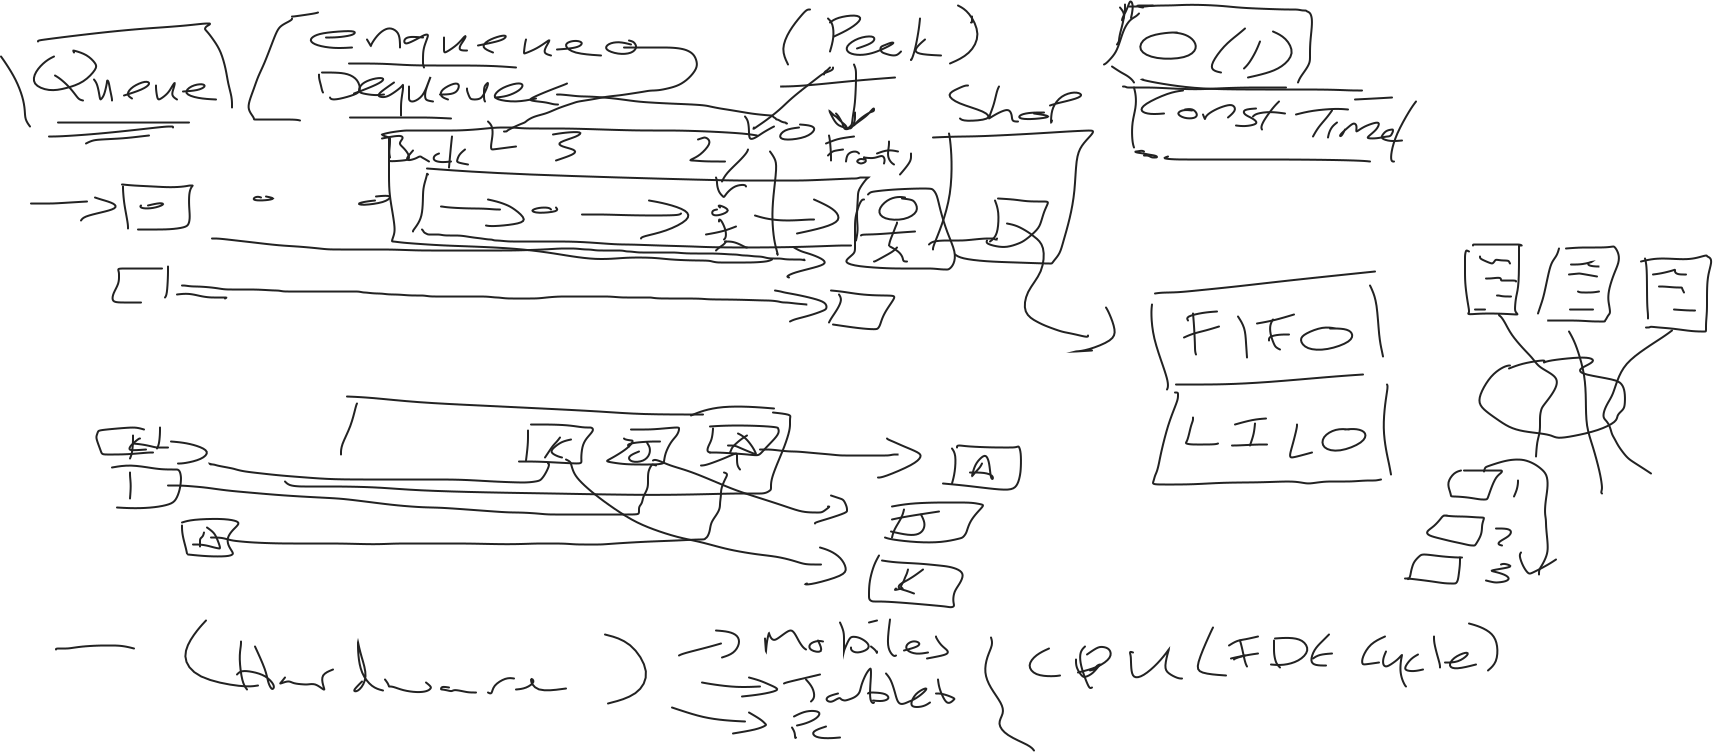 Queue
enqueue
Dequeue
(Peek)
O(1)
Const Time
Shop
Back
3
2
Front
FIFO
LILO
K
J
A
K
A
A
J
K
1
2
3
(Hardware)
→ Mobiles
→ Tablet
→ Pc
CPU (FDE Cycle)